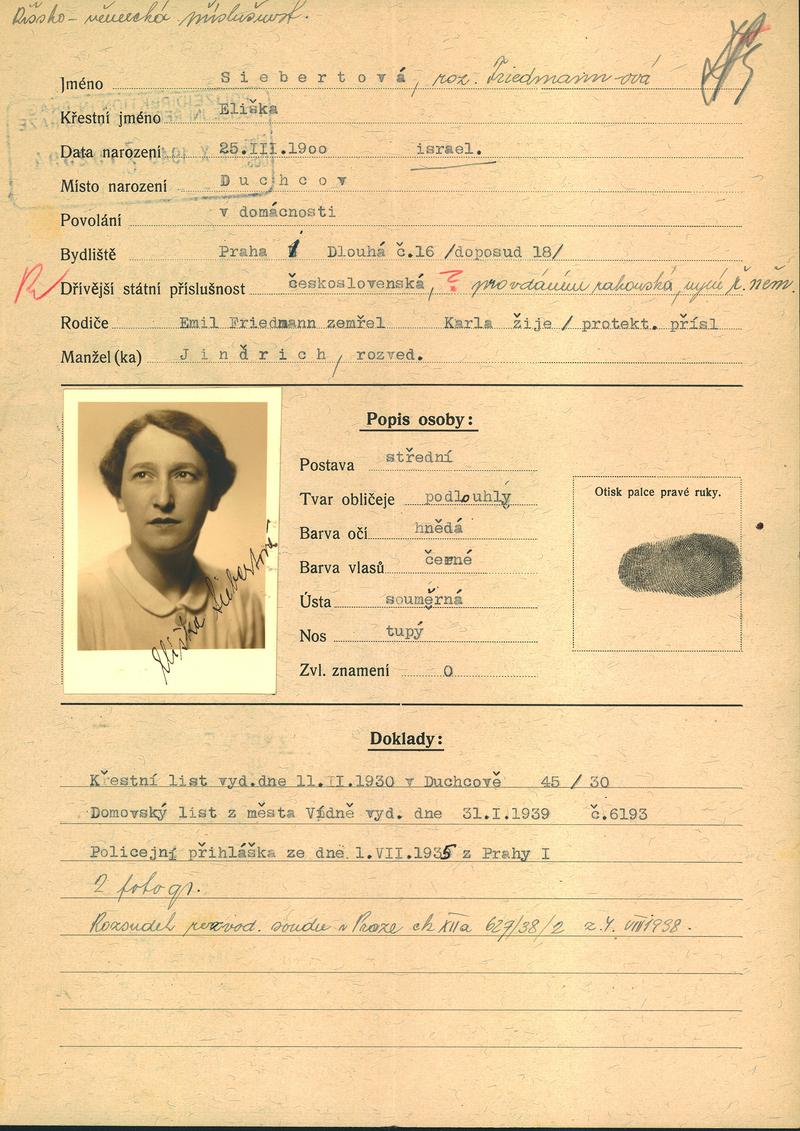 Říšsko-německá příslušnost.
Jméno S i e b e r t o v á, roz. Friedmann-ová
Křestní jméno Eliška
Data narození 25.III.19oo israel.
Místo narození D u c h c o v
Povolání v domácnosti
Bydliště Praha 1 Dlouhá č.16 /doposud 18/
Dřívější státní příslušnost československá, ? provdáním rakouská, nyní ř. něm.
Rodiče Emil Friedmann zemřel Karla žije / protekt. přísl
Manžel (ka) J i n d r i c h, rozved.
Popis osoby:
Postava střední
Tvar obličeje podlouhlý
Barva očí hnědá
Barva vlasů černé
Ústa souměrná
Nos tupý
Zvl. znamení 0
Otisk palce pravé ruky.
Eliška Siebertová
Doklady:
Křestní list vyd.dne 11.II.1930 v Duchcově 45 / 30
Domovský list z města Vídně vyd. dne 31.I.1939 č.6193
Policejní přihláška ze dne 1.VII.1935 z Prahy I
2 fotogr.
Rozsudek rozvod. soudu v Praze ck XIIa 627/38/2 z 4. VIII 1938.